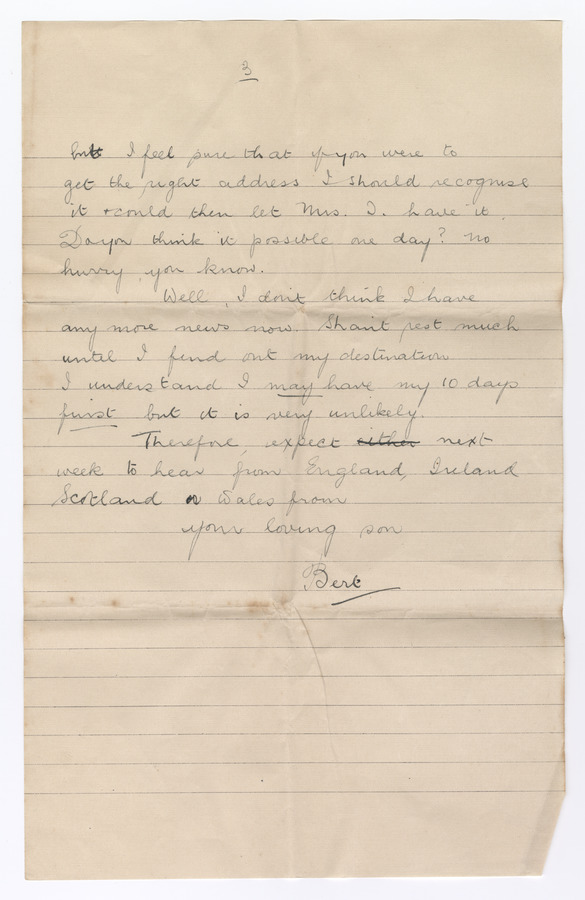 3
but I feel sure that if you were to
get the right address I should recognise
it & could then let Mrs. I. have it.
Do you think it possible one day? No
hurry you know.
Well, I don't think I have
any more news now. Shan't rest much
until I find out my destination
I understand I may have my 10 days
first but it is very unlikely.
Therefore, expect either next
week to hear from England, Ireland
Scotland or Wales from
your loving son
Bert